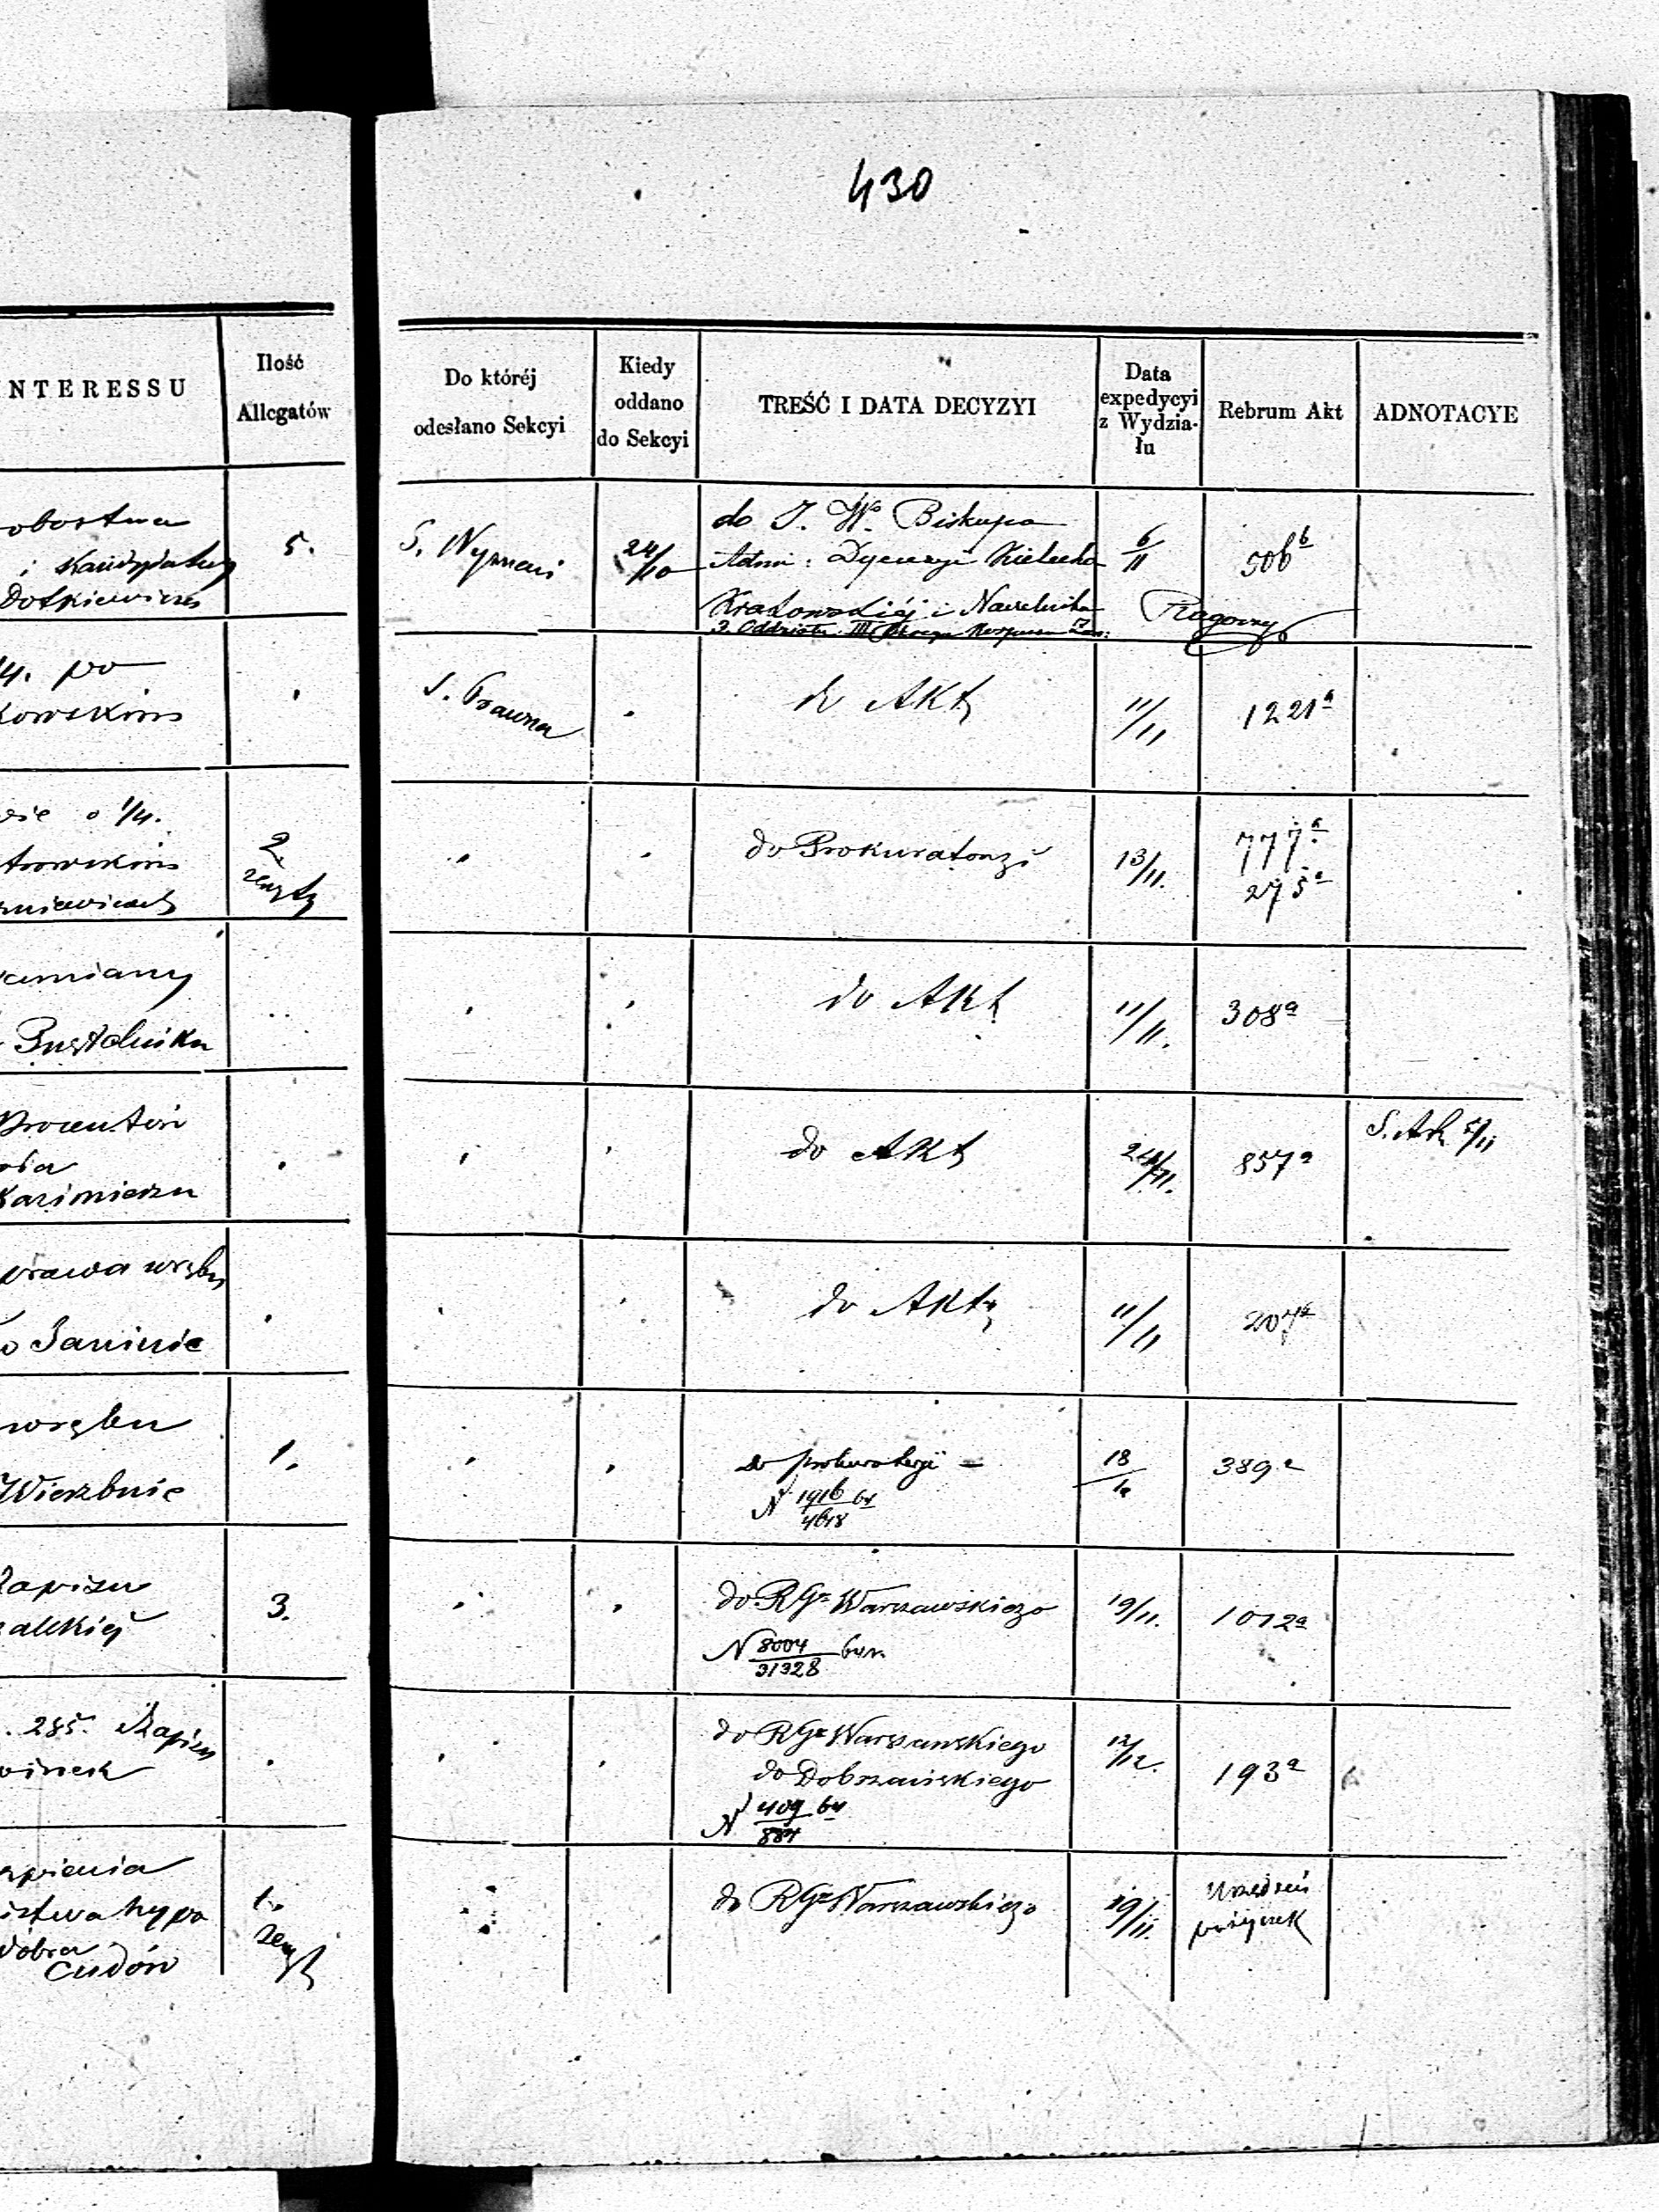 430
NTERESSU
Ilość
Allegatów
Do któréj
odesłano Sekcyi
Kiedy
oddano
do Sekcyi
TREŚĆ I DATA DECYZYI
Data
expedycyi
z Wydzia-
łu
Rebrum Akt
ADNOTACYE
obostwa
i
5.
S. Wyznań
24/10
do J. W. Biskupa
Admi: Dyecezyi Kielecko
Krakowskiéj i Naczelnika
3. Oddziału III
6/11
506 b
4. po
kowskim
S. Prawna
do Akt
11/11
1221 a
sie o 1/4.
2
do Prokuratoryi
13/11.
777 a
275 a
zamiany
Pustelniku
do Akt
11/11.
308 a
Procentów
Kazimierzu
do Akt
24/11.
857 a
S. Ak 5/11
prawa wrębu
Janinie
do Akt
11/11
207 a
wrębu
Wierzbnie
1.
do prokuratoryi
N 1916/4618
18
389 a
Zapisu
alskiéj
3.
do RGo Warszawskiego
N 8004/31328
19/11.
1012 a
285. Zapisu
do RGo Warszawskiego
do Dobrzańskiego
N 409/884
12/12.
193 a
pienia
istwa hypo
dobra
Cudów
1.
do RGo Warszawskiego
19/11.
pożyczek